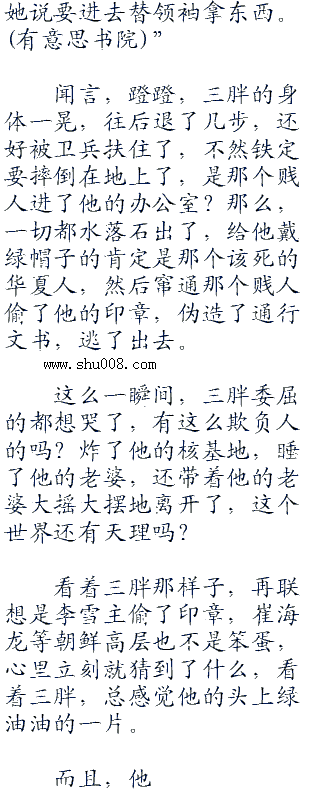 她说要进去替领袖拿东西。
(有意思书院)”
闻言，蹬蹬，三胖的身
体一晃，往后退了几步，还
好被卫兵扶住了，不然铁定
要摔倒在地上了，是那个贱
人进了他的办公室？那么，
一切都水落石出了，给他戴
绿帽子的肯定是那个该死的
华夏人，然后窜通那个贱人
偷了他的印章，伪造了通行
文书，逃了出去。
www.shu008.com
这么一瞬间，三胖委屈
的都想哭了，有这么欺负人
的吗？炸了他的核基地，睡
了他的老婆，还带着他的老
婆大摇大摆地离开了，这个
世界还有天理吗？
看着三胖那样子，再联
想是李雪主偷了印章，崔海
龙等朝鲜高层也不是笨蛋，
心里立刻就猜到了什么，看
着三胖，总感觉他的头上绿
油油的一片。
而且，他